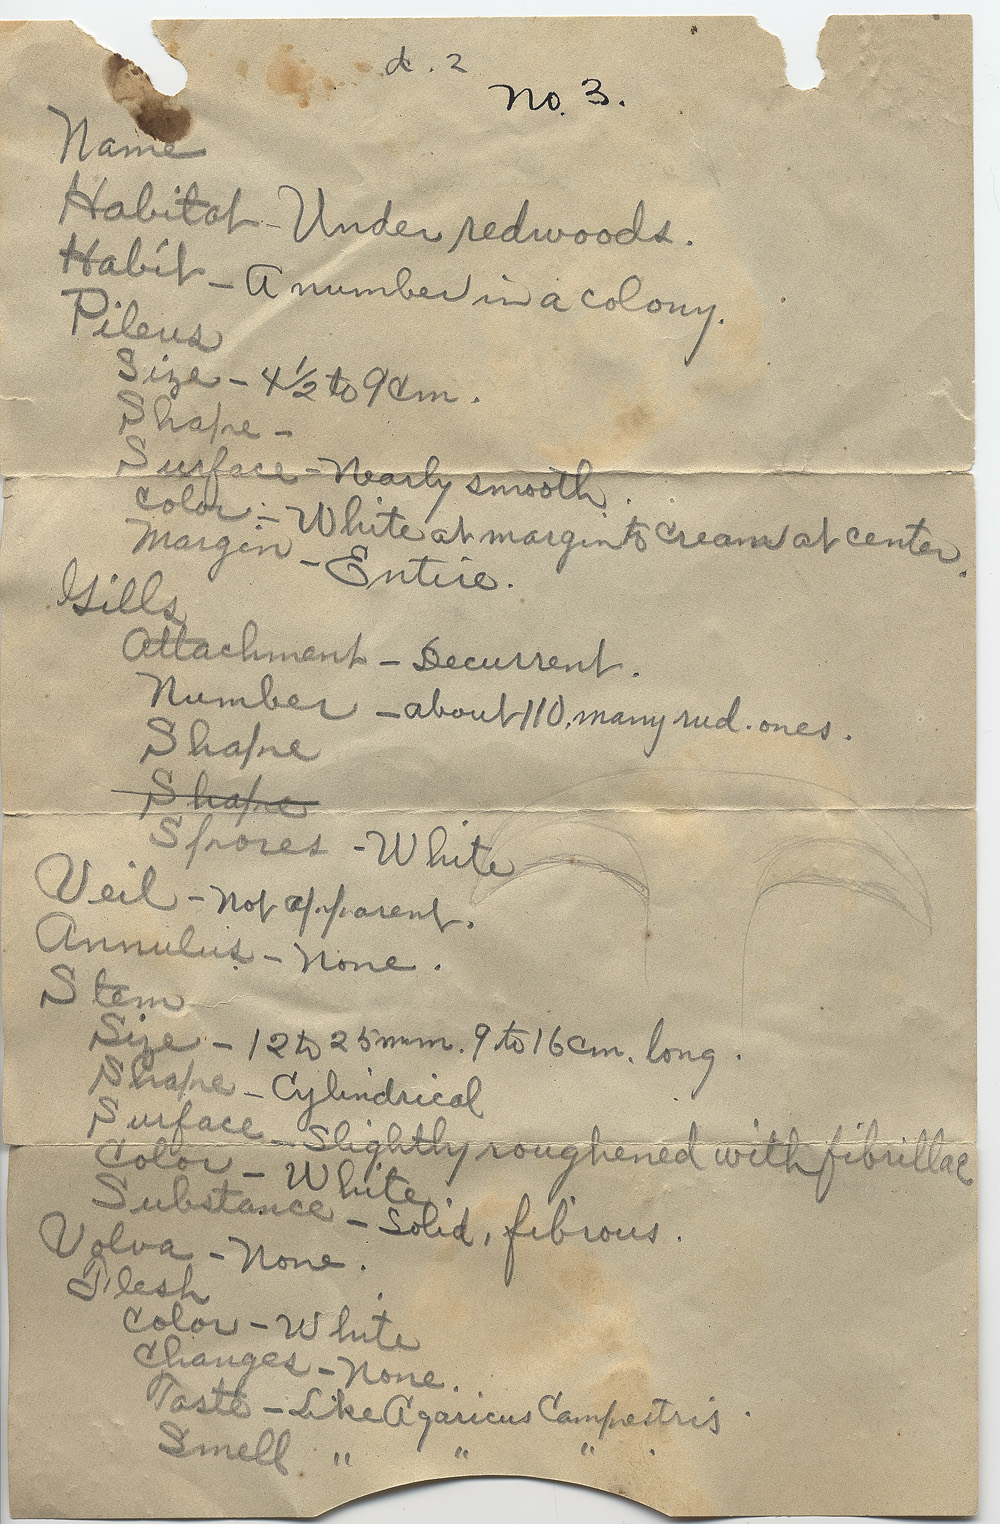 d. 2
No. 3.
Name
Habitat - Under redwoods.
Habit - A number in a colony.
Pileus
Size - 4 1/2 to 9 cm.
Shape -
Surface - Nearly smooth.
Color - White at margin to cream at center.
Margin - Entire.
Gills
Attachment - Decurrent.
Number - about 110, many rud. ones.
Shape
Shape
Spores - White
Veil - Not apparent.
Annulus - None.
Stem
Size - 12 to 25 mm. 9 to 16 cm. long.
Shape - Cylindrical
Surface - Slightly roughened with fibrillae
Color - White.
Substance - Solid, fibrous.
Volva - None.
Flesh
Color - White
Changes - None.
Taste - Like Agaricus Campestris.
Smell " " " .